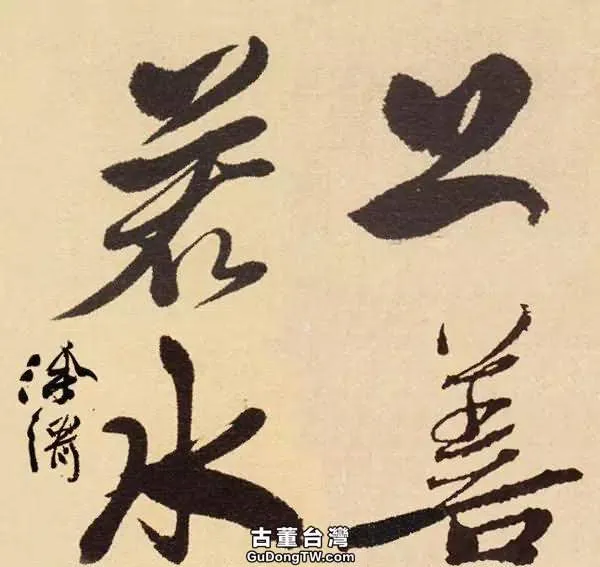 上善
若水
古董台灣
GuDongTW.com